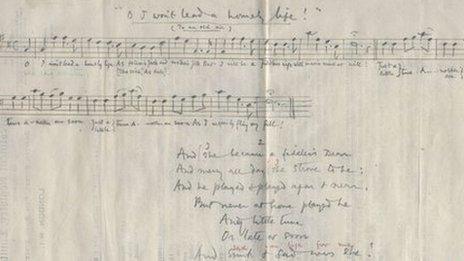 "O I won't lead a homely life!"
(To an old air)
O I won't lead a homely life, As father's Jack and mother's Jill, But I will be a fiddler's wife, With music mine at will! Just a
little tune, A- -nother
tune, A-nother one soon, Just a little tune, A- -nother one soon, As I merrily fling my fill!
2
And she became a fiddler's Dear
And merry all day she strove to be;
And he played & played afar & near,
But never at home played he
Any little tune
Or late or soon
And sunk & sad was she!